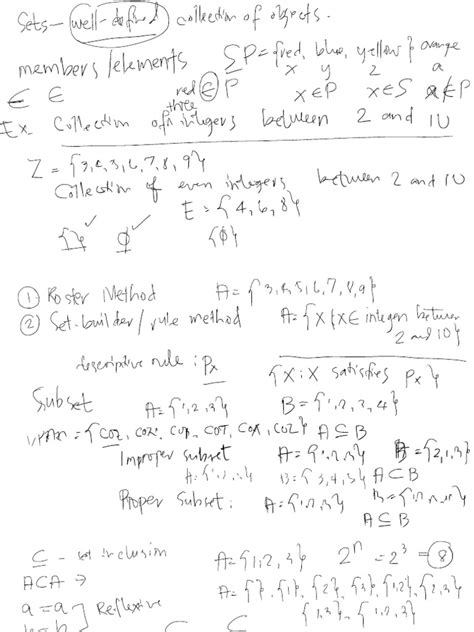 Sets - well-defined collection of objects.
members/elements P = {red, blue, yellow} orange
x y z a
∈ ∈ red ∈ P x∈P x∈S a∉P
three
Ex. Collection of integers between 2 and 10
Z = {3,4,5,6,7,8,9}
Collection of even integers between 2 and 10
E = {4,6,8}
{} ✓ ϕ ✓ {ϕ}
① Roster Method A = {3,4,5,6,7,8,9}
② Set-builder/rule method A = {x/x∈ integer between
2 and 10}
descriptive rule : Px {x : x satisfies Px}
Subset A = {1,2,3} B = {1,2,3,4}
A ⊆ B
Improper subset A = {1,2,3} B = {2,1,3}
B = {3,4,5} A ⊂ B
Proper Subset : A = {1,2,3}
A ⊆ B
⊆ - inclusion A = {1,2,3} 2ⁿ = 2³ = 8
A⊂A → A = {}, {1}, {2}, {3}, {1,2}, {2,3}
a = a Reflexive {1,3}, {1,2,3}
b = b